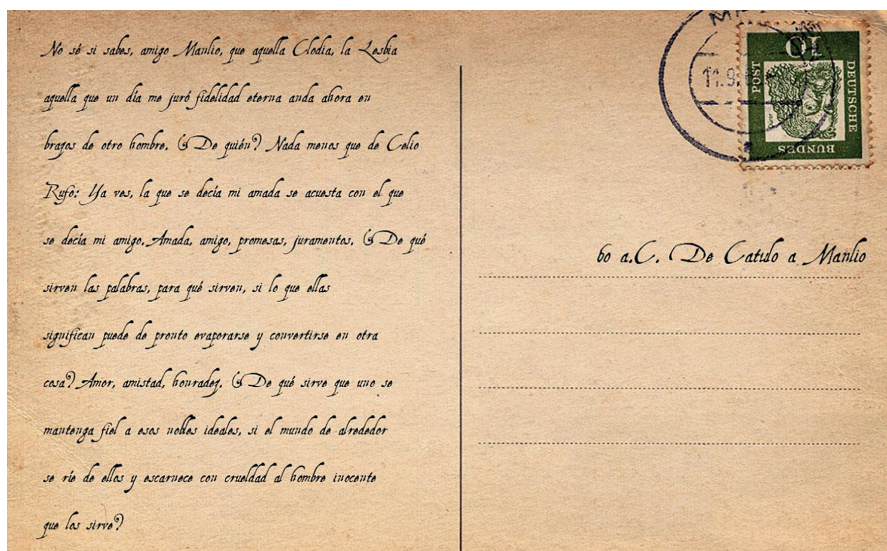 No sé si sabes, amigo Manlio, que aquella Clodia, la Lesbia
aquella que un día me juró fidelidad eterna anda ahora en
brazos de otro hombre. ¿De quién? Nada menos que de Celio
Rufo: Ya ves, la que se decía mi amada se acuesta con el que
se decía mi amigo. Amada, amigo, promesas, juramentos. ¿De qué
sirven las palabras, para qué sirven, si lo que ellas
significan puede de pronto evaporarse y convertirse en otra
cosa? Amor, amistad, honradez. ¿De qué sirve que uno se
mantenga fiel a esos nobles ideales, si el mundo de alrededor
se ríe de ellos y escarnece con crueldad al hombre inocente
que los sirve?
11.9.
10
DEUTSCHE
BUNDES
POST
60 a.C. De Catulo a Manlio